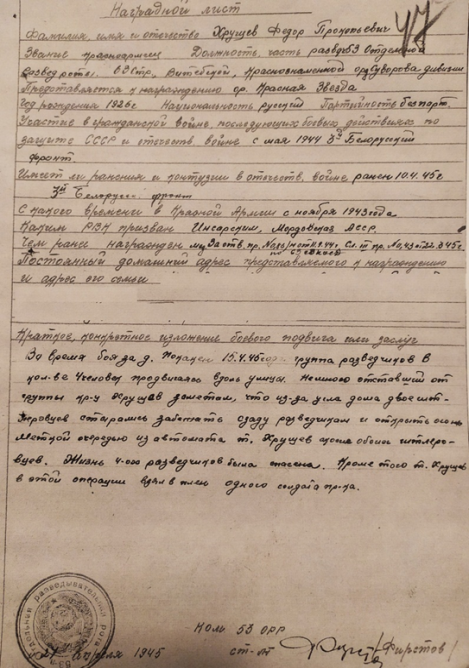 Наградной лист
47
Фамилия, имя и отчество Хрущев Федор Прокопьевич
Звание красноармеец Должность, часть разведчик Отдельной
разведроты. Стр., Витебской, Краснознаменной орд. Суворова дивизии
Представляется к награждению ор. Красная Звезда
Год рождения 1926г. Национальность русский Партийность беспарт.
Участие в гражданской войне, последующих боевых действиях по
защите СССР и отечеств. войне с мая 1944 3й Белорусский
фронт.
Имеет ли ранения и контузии в отечеств. войне ранен 10.4.45г
3й Белорусс. фронт
С какого времени в Красной Армии с ноября 1943 года
Каким РВК призван Инсарским, Мордовская АССР.
Чем ранее награжден
Постоянный домашний адрес представляемого к награждению
и адрес его семьи
Краткое, конкретное изложение боевого подвига или заслуг
Во время боя за д. 15.4.45 года группа разведчиков в
кол-ве 4 человек продвигаясь вдоль улицы. Немного отставший от
группы кр-ц Хрущев заметил, что из-за угла дома двое гит-
леровцев старались забежать сзади разведчикам и открыть огонь
Меткой очередью из автомата т. Хрущев убил обоих гитлеров-
цев. Жизнь 4-ого разведчиков была спасена. Кроме того т. Хрущев
в этой операции взял в плен одного солдата пр-ка.
Ком 53 ОРР
27 апреля 1945 ст. л-т /Фирстов/